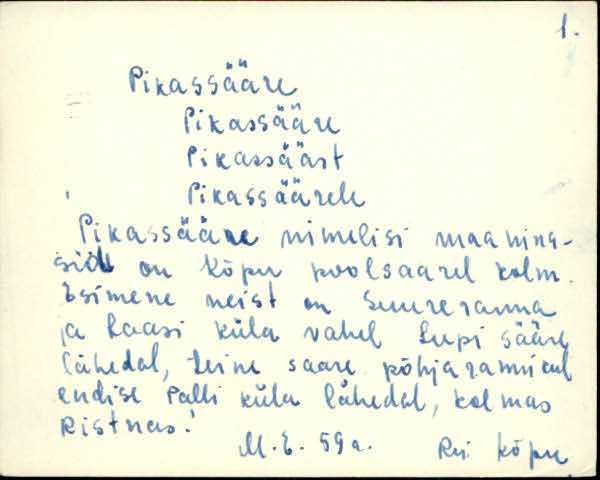 1.
Pikassääre
Pikassääre
Pikassäärt
Pikassäärele
Pikassääre nimelisi maanina-
sid on Kõpu poolsaarel kolm.
Esimene neist on Suureranna
ja Laasi küla vahel Lupi sääre
lähedal, teine saare põhjarannikul
endise Palli küla lähedal, kolmas
Ristnas.
M. E. 59a. Rei Kõpu